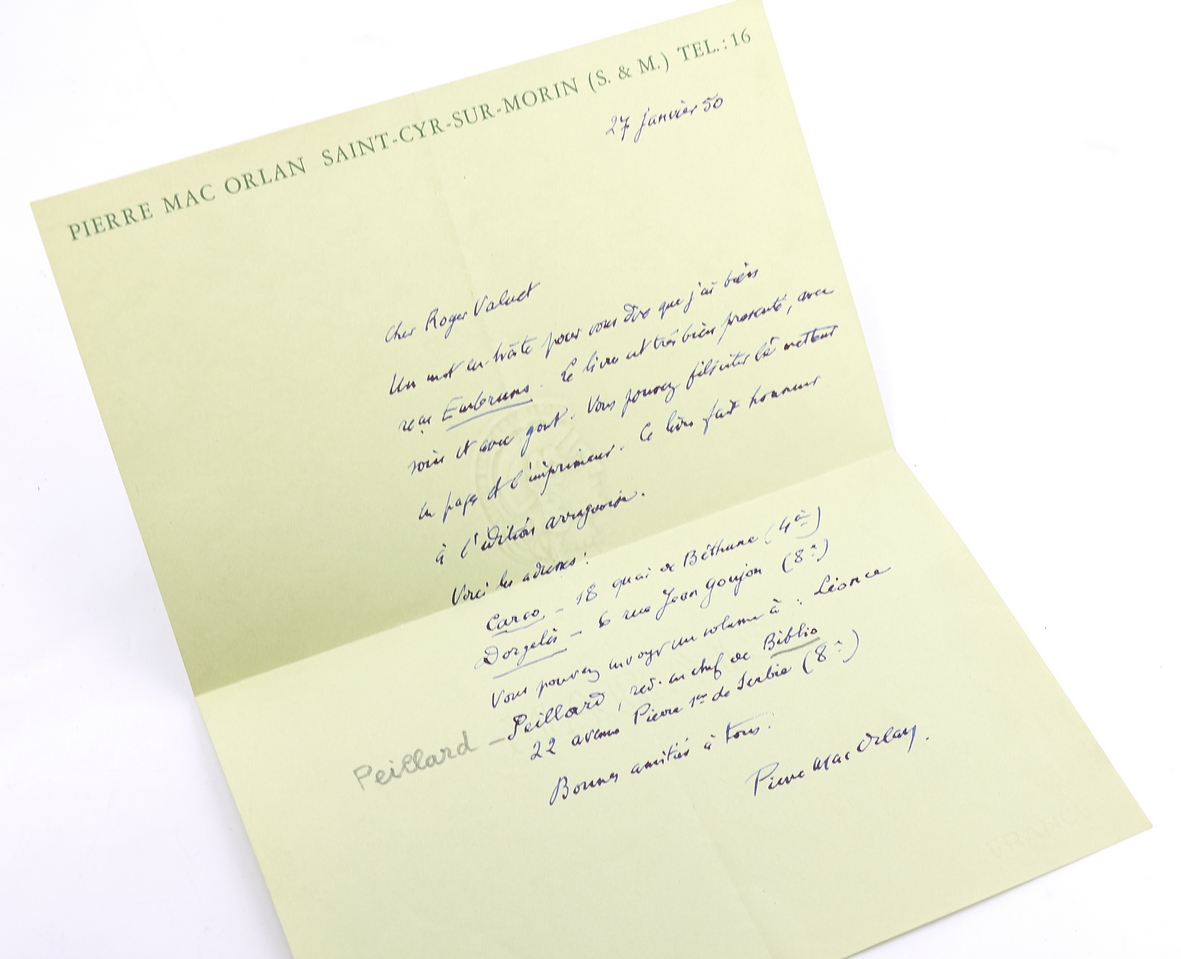 PIERRE MAC ORLAN SAINT-CYR-SUR-MORIN (S. & M.) TEL.: 16
27 janvier 50
Cher Roger Valuet
Un mot en hâte pour vous dire que j'ai bien
reçu Embruns. Ce livre est très bien présenté, avec
soin et avec gout. Vous pouvez féliciter le metteur
en pages et l'imprimeur. Ce livre fait honneur
à l'édition
Voici les adresses :
Carco. - 18 quai de Béthune (4è)
Dorgelès - 6 rue Jean Goujon (8è)
Vous pouvez envoyer un volume à : Léonce
Peillard - Peillard, red. en chef de Biblio
22 avenue Pierre 1er de Serbie (8è)
Bonnes amitiés à tous.
Pierre Mac Orlan.
FRANCE